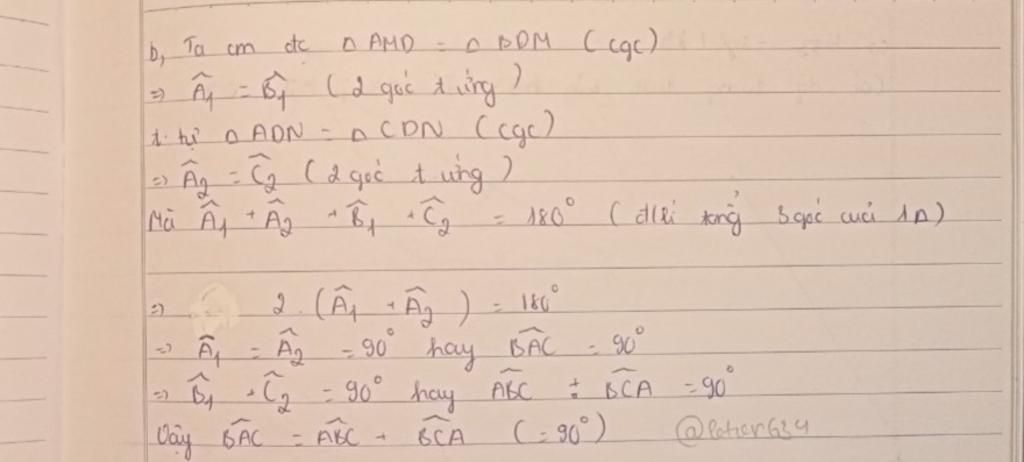 b, Ta cm đc Δ AMD = Δ BDM (cgc)
=> Â₁ = B̂₁ (2 góc t ứng)
t. tự Δ ADN = Δ CDN (cgc)
=> Â₂ = Ĉ₂ (2 góc t ứng)
Mà Â₁ + Â₂ + B̂₁ + Ĉ₂ = 180° (đlí tổng 3 góc cuả 1Δ)
=> 2. (Â₁ + Â₂) = 180°
=> Â₁ = Â₂ = 90° hay BAC = 90°
=> B̂₁ + Ĉ₂ = 90° hay ABC + BCA = 90°
Vậy BAC = ABC + BCA (= 90°)